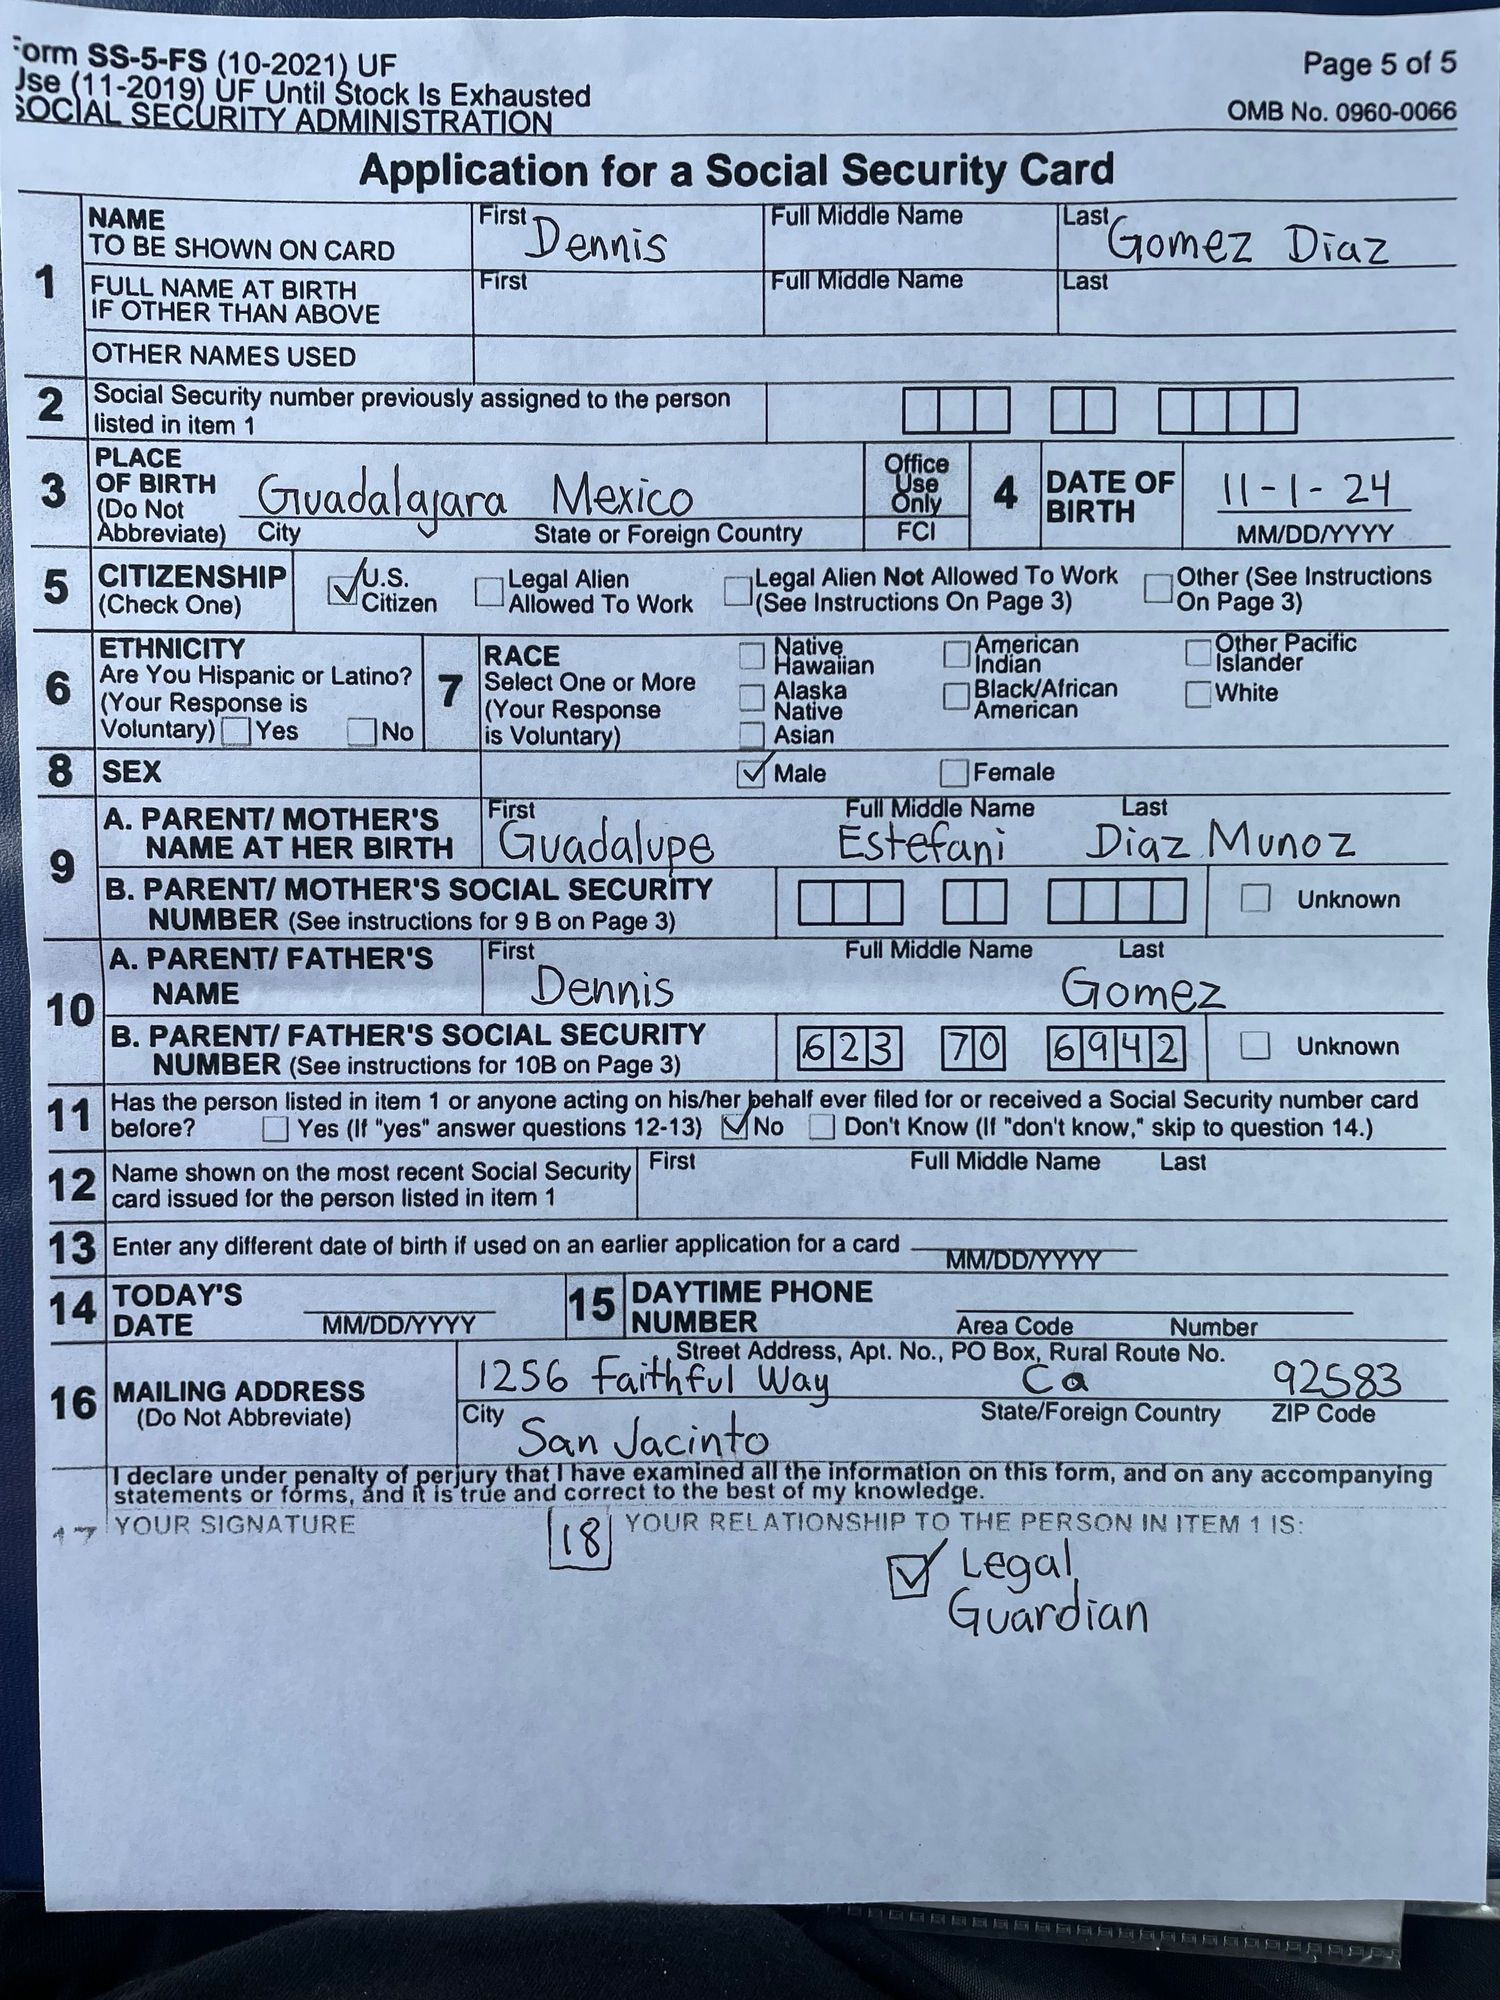 Form SS-5-FS (10-2021) UF
Use (11-2019) UF Until Stock Is Exhausted
SOCIAL SECURITY ADMINISTRATION
Page 5 of 5
OMB No. 0960-0066
Application for a Social Security Card
1
NAME
TO BE SHOWN ON CARD
First Dennis
Full Middle Name
Last Gomez Diaz
FULL NAME AT BIRTH
IF OTHER THAN ABOVE
First
Full Middle Name
Last
OTHER NAMES USED
2
Social Security number previously assigned to the person
listed in item 1
3
PLACE
OF BIRTH
(Do Not
Abbreviate)
Guadalajara Mexico
City
State or Foreign Country
Office
Use
Only
FCI
4
DATE OF
BIRTH
11-1-24
MM/DD/YYYY
5
CITIZENSHIP
(Check One)
U.S.
Citizen
Legal Alien
Allowed To Work
Legal Alien Not Allowed To Work
(See Instructions On Page 3)
Other (See Instructions
On Page 3)
6
ETHNICITY
Are You Hispanic or Latino?
(Your Response is
Voluntary) Yes No
7
RACE
Select One or More
(Your Response
is Voluntary)
Native
Hawaiian
Alaska
Native
Asian
American
Indian
Black/African
American
Other Pacific
Islander
White
8
SEX
Male
Female
9
A. PARENT/ MOTHER'S
NAME AT HER BIRTH
First
Full Middle Name
Last
Guadalupe Estefani Diaz Munoz
B. PARENT/ MOTHER'S SOCIAL SECURITY
NUMBER (See instructions for 9 B on Page 3)
Unknown
10
A. PARENT/ FATHER'S
NAME
First
Full Middle Name
Last
Dennis Gomez
B. PARENT/ FATHER'S SOCIAL SECURITY
NUMBER (See instructions for 10B on Page 3)
623 70 6942
Unknown
11
Has the person listed in item 1 or anyone acting on his/her behalf ever filed for or received a Social Security number card
before? Yes (If "yes" answer questions 12-13) No Don't Know (If "don't know," skip to question 14.)
12
Name shown on the most recent Social Security
card issued for the person listed in item 1
First
Full Middle Name
Last
13
Enter any different date of birth if used on an earlier application for a card
MM/DD/YYYY
14
TODAY'S
DATE
MM/DD/YYYY
15
DAYTIME PHONE
NUMBER
Area Code
Number
16
MAILING ADDRESS
(Do Not Abbreviate)
Street Address, Apt. No., PO Box, Rural Route No.
1256 Faithful Way Ca 92583
City
State/Foreign Country
ZIP Code
San Jacinto
I declare under penalty of perjury that I have examined all the information on this form, and on any accompanying
statements or forms, and it is true and correct to the best of my knowledge.
17
YOUR SIGNATURE
18
YOUR RELATIONSHIP TO THE PERSON IN ITEM 1 IS:
Legal
Guardian